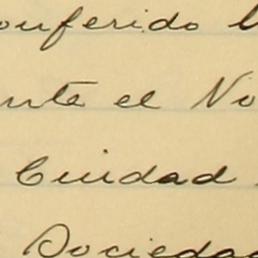 onferido
ante el No
Ciudad
Sociedad